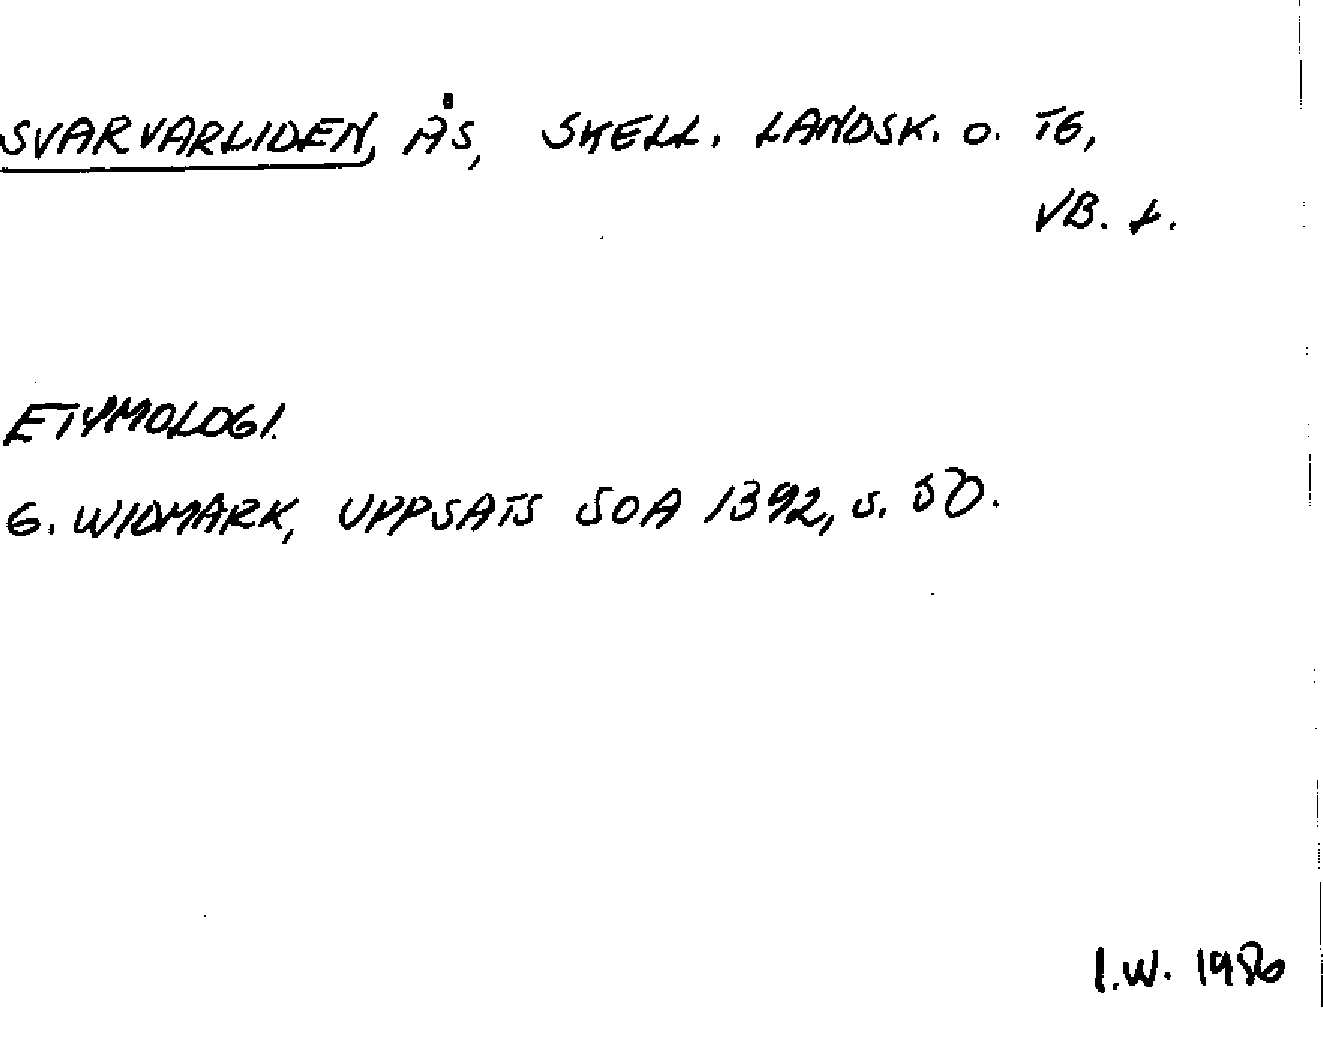 SVARVARLIDEN, ÅS, SKELL. LANDSK. O. TG,
VB. L.
ETYMOLOGI.
G. WIDMARK, UPPSATS SOA 1392, S. 50.
I.W. 1986